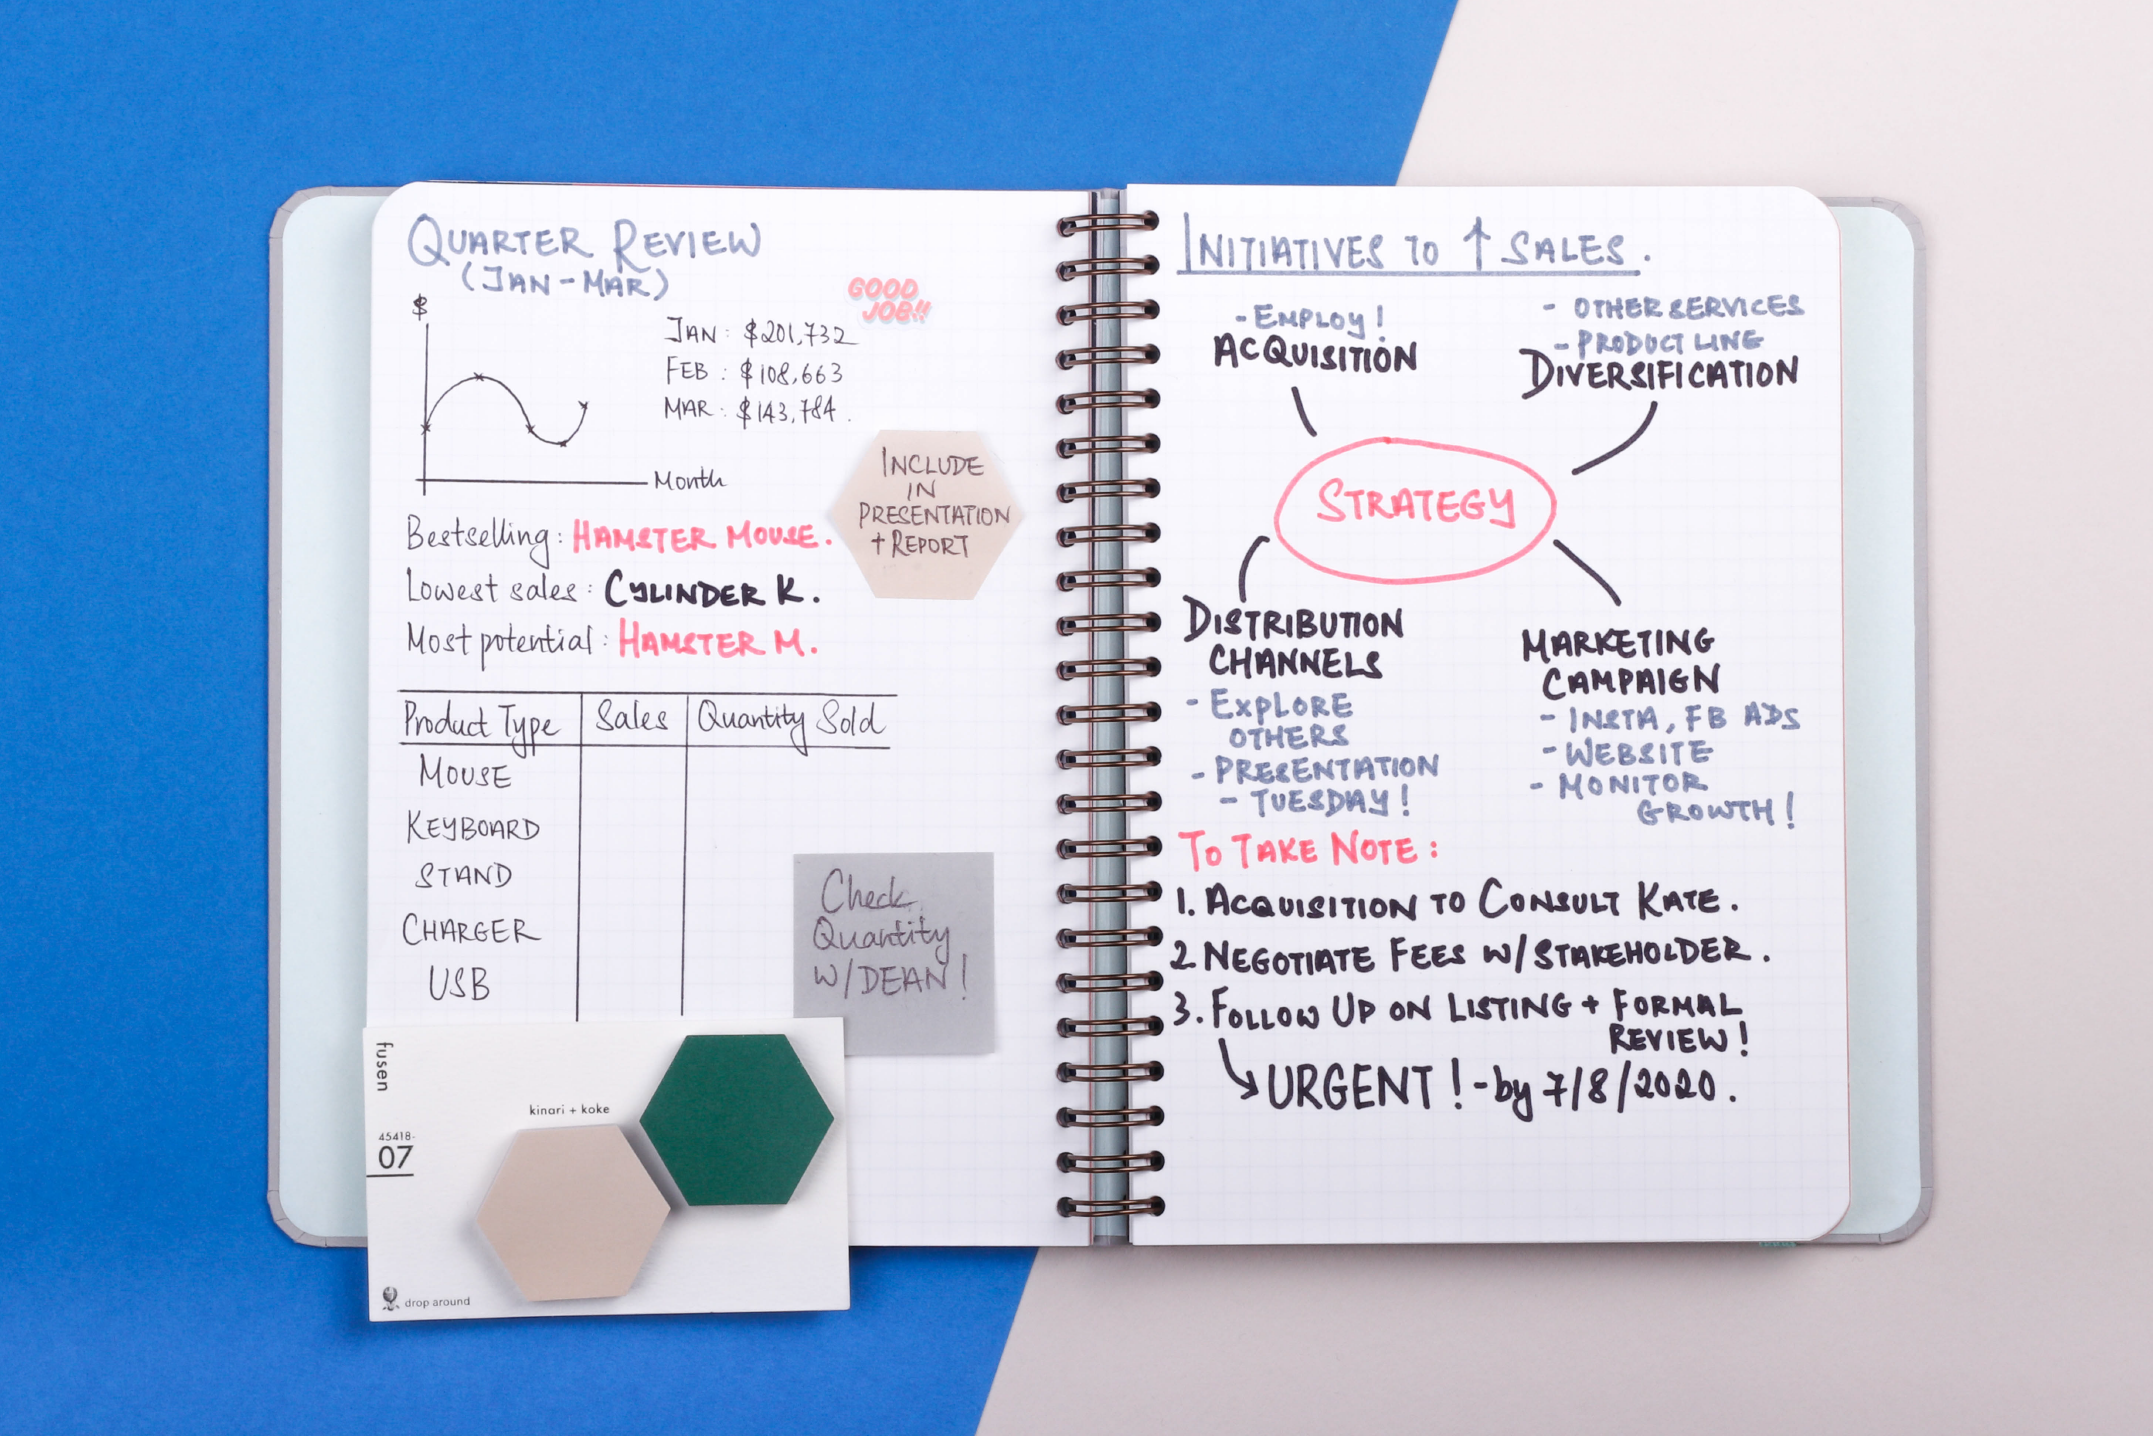 QUARTER REVIEW
(JAN-MAR)
$
Month
JAN: $201,732
FEB: $108,663
MAR: $143,784.
GOOD
JOB!!
INCLUDE
IN
PRESENTATION
+ REPORT
Bestselling: HAMSTER MOUSE.
Lowest sales: CYLINDER K.
Most potential: HAMSTER M.
Product Type Sales Quantity Sold
MOUSE
KEYBOARD
STAND
CHARGER
USB
Check
Quantity
W/DEAN!
fusen
45418-
07
kinari + koke
drop around
INITIATIVES TO ↑ SALES.
- EMPLOY!
ACQUISITION
- OTHER SERVICES
- PRODUCT LINE
DIVERSIFICATION
STRATEGY
DISTRIBUTION
CHANNELS
- EXPLORE
OTHERS
- PRESENTATION
- TUESDAY!
MARKETING
CAMPAIGN
- INSTA, FB ADS
- WEBSITE
- MONITOR
GROWTH!
TO TAKE NOTE:
1. ACQUISITION TO CONSULT KATE.
2 NEGOTIATE FEES W/STAKEHOLDER.
3. FOLLOW UP ON LISTING + FORMAL
REVIEW!
URGENT! - by 7/8/2020.